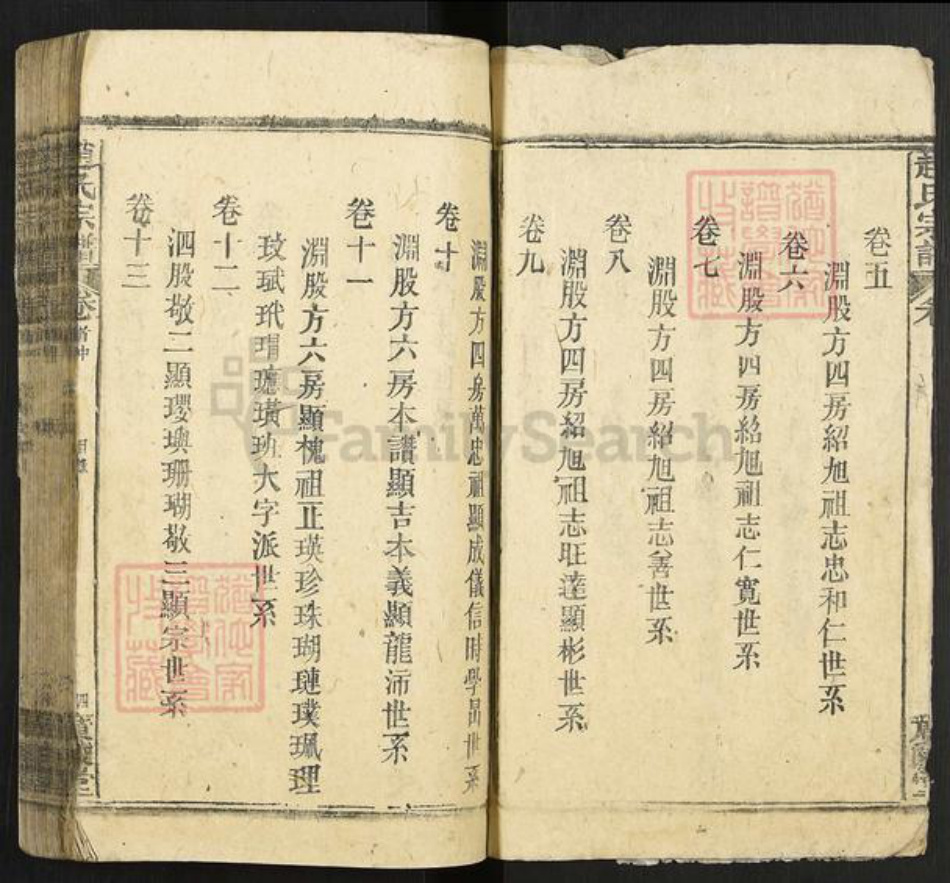 趙氏宗譜
卷五
淵股方四房紹旭祖志忠和仁世系
卷六
淵股方四房紹旭祖志仁寬世系
卷七
淵股方四房紹旭祖志善世系
卷八
淵股方四房紹旭祖志旺達顯彬世系
卷九
淵股方四房萬忠祖顯成儀信時學昌世系
卷十
淵股方六房本讚顯吉本義顯龍沛世系
卷十一
淵股方六房顯槐祖正瑛珍珠瑚璉璞珮理
玟珷玳瑁璁璜玐大字派世系
卷十二
泗股敬二顯瓔璵珊瑚敬三顯宗世系
卷十三
趙氏宗譜
卷首中
目錄
四
FamilySearch